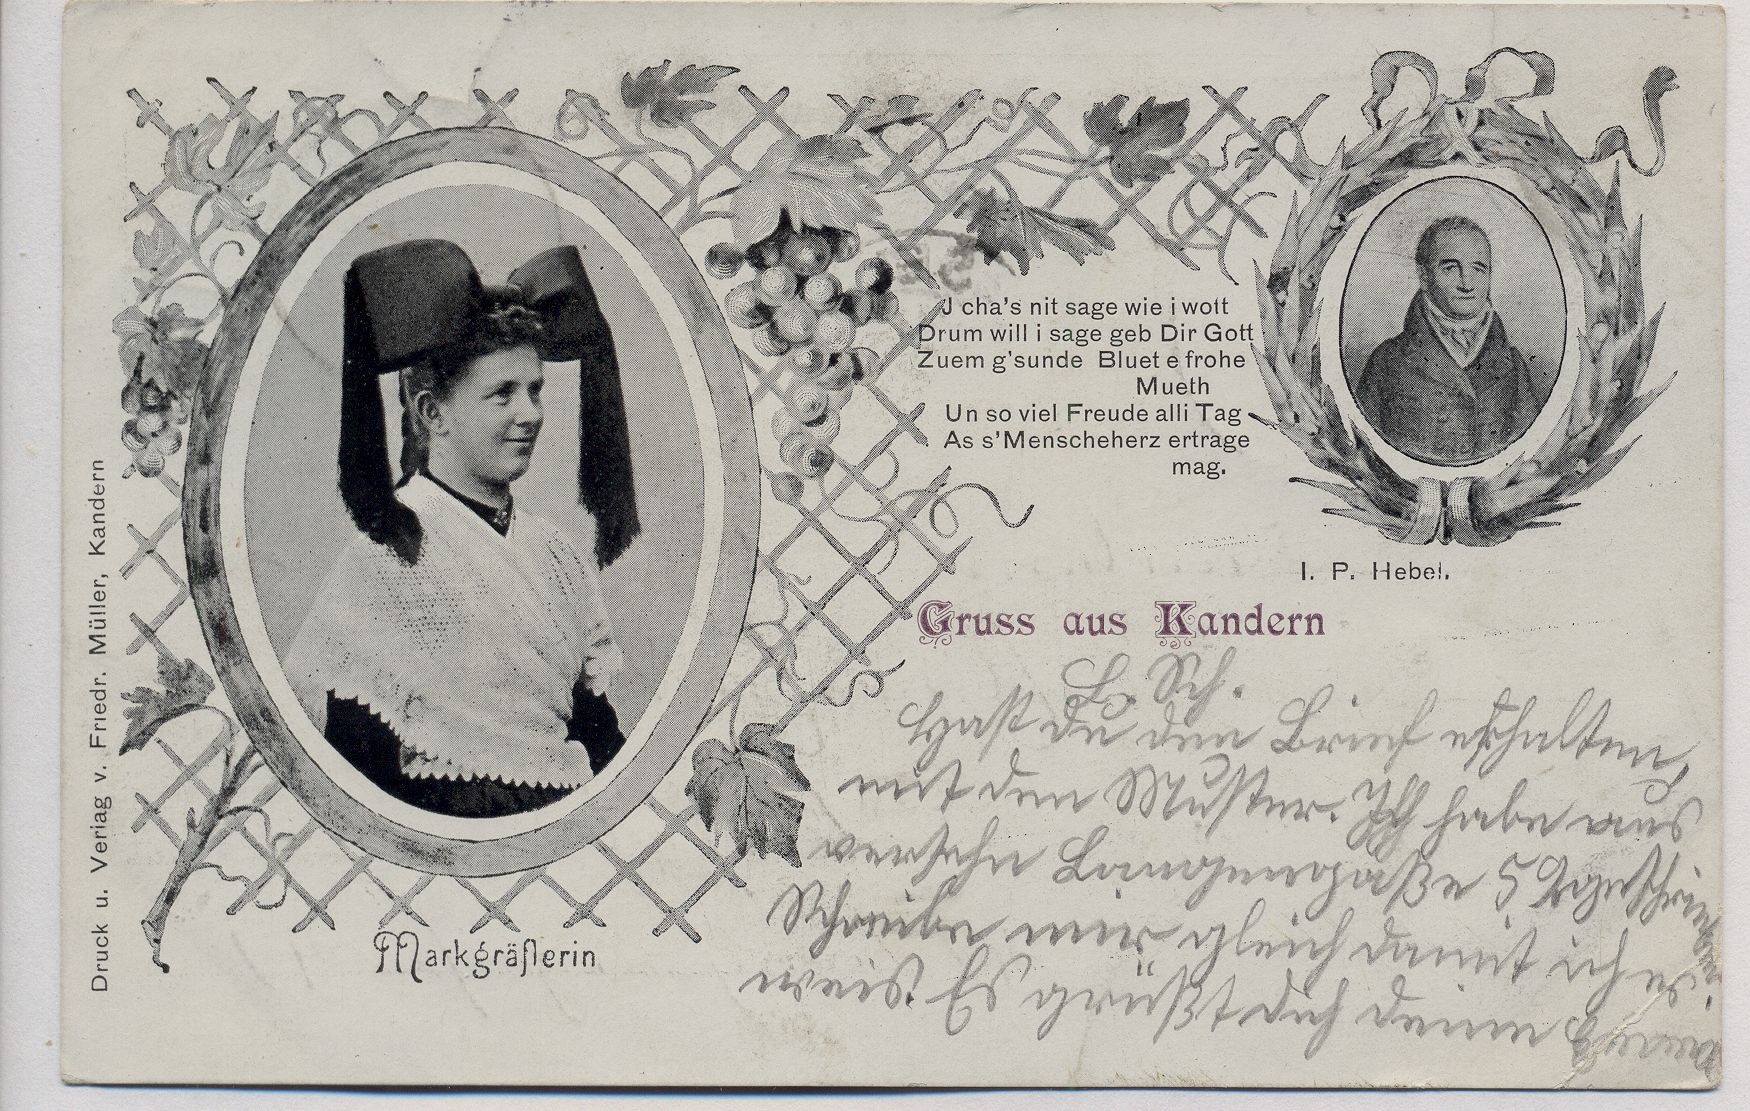 J cha's nit sage wie i wott
Drum will i sage geb Dir Gott
Zuem g'sunde Bluet e frohe
Mueth
Un so viel Freude alli Tag
As s'Menscheherz ertrage
mag.
I. P. Hebel.
Gruss aus Kandern
L. Sch.
Hast du den Brief erhalten,
mit den Muster. Ich habe aus
versehn Langengaße 5 geschrieben
Schreibe mir gleich damit ich es
weis. Es grüßt dich deine
Markgräflerin
Druck u. Verlag v. Friedr. Müller, Kandern